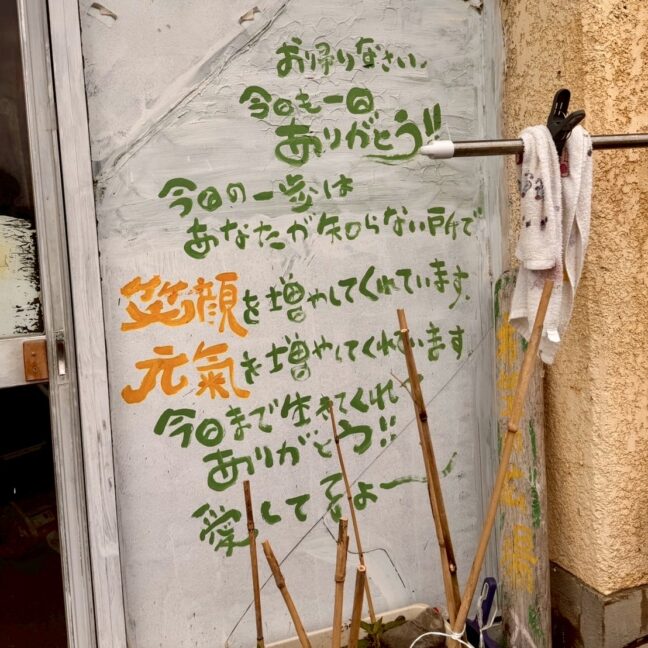 お帰りなさい
今日も一日
ありがとう!!
今日の一歩は
あなたが知らない所で
笑顔を増やしてくれています.
元氣を増やしてくれています
今日まで生きてくれて
ありがとう!!
愛してるよー